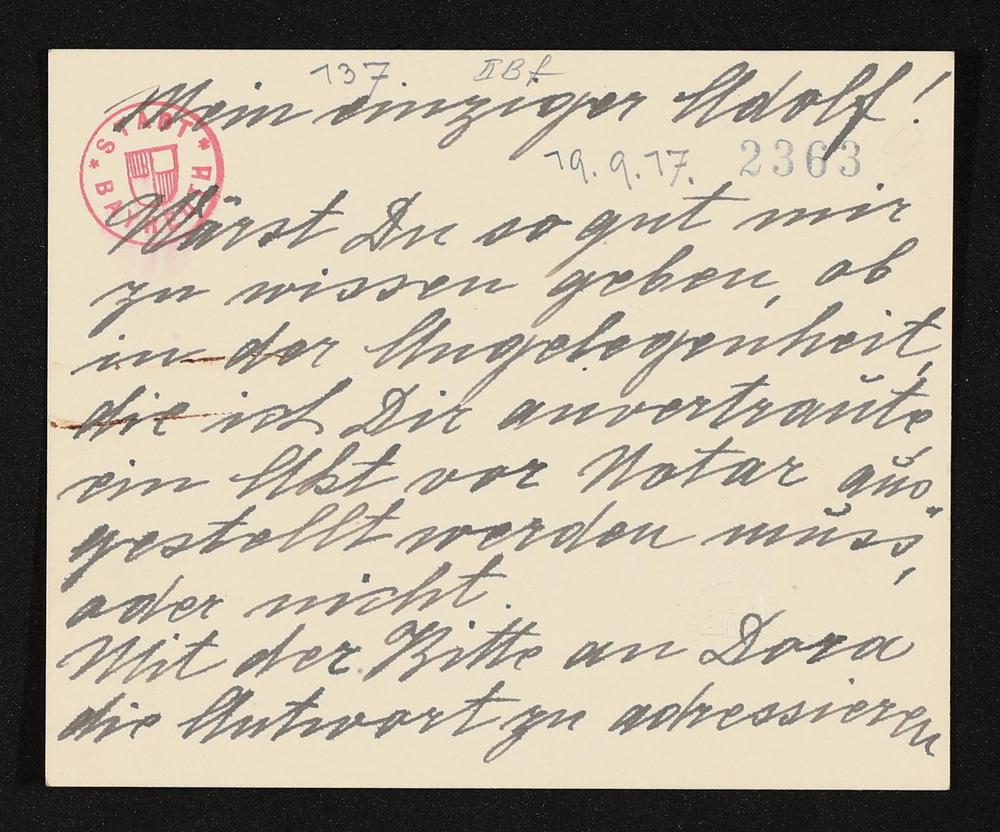 137. IIBf
Mein einziger Adolf!
STADT BA
19.9.17. 2363
Wärst Du so gut mir
zu wissen geben, ob
in der Angelegenheit,
die ich Dir anvertraute,
ein Akt vor Notar aus
gestellt werden muss,
oder nicht.
Mit der Bitte an Dora
die Antwort zu adressieren